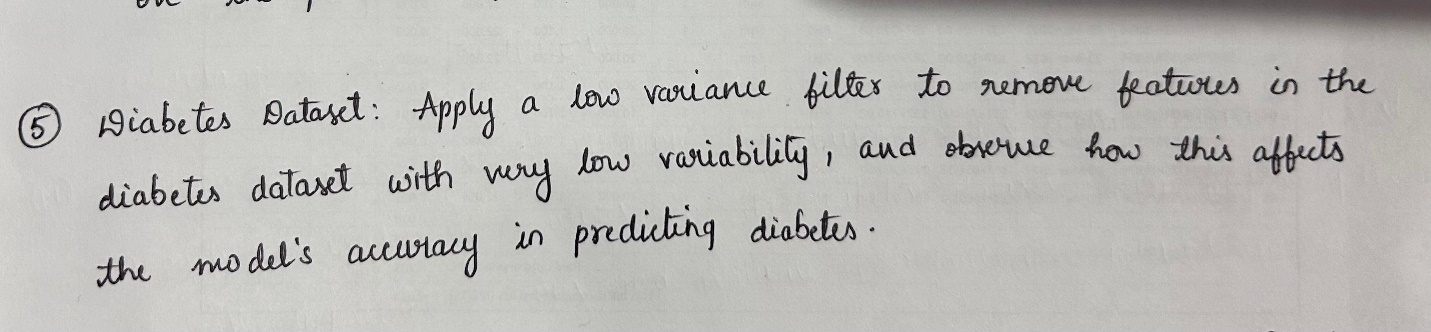 ⑤ Diabetes Dataset: Apply a low variance filter to remove features in the
diabetes dataset with very low variability, and observe how this affects
the model's accuracy in predicting diabetes.